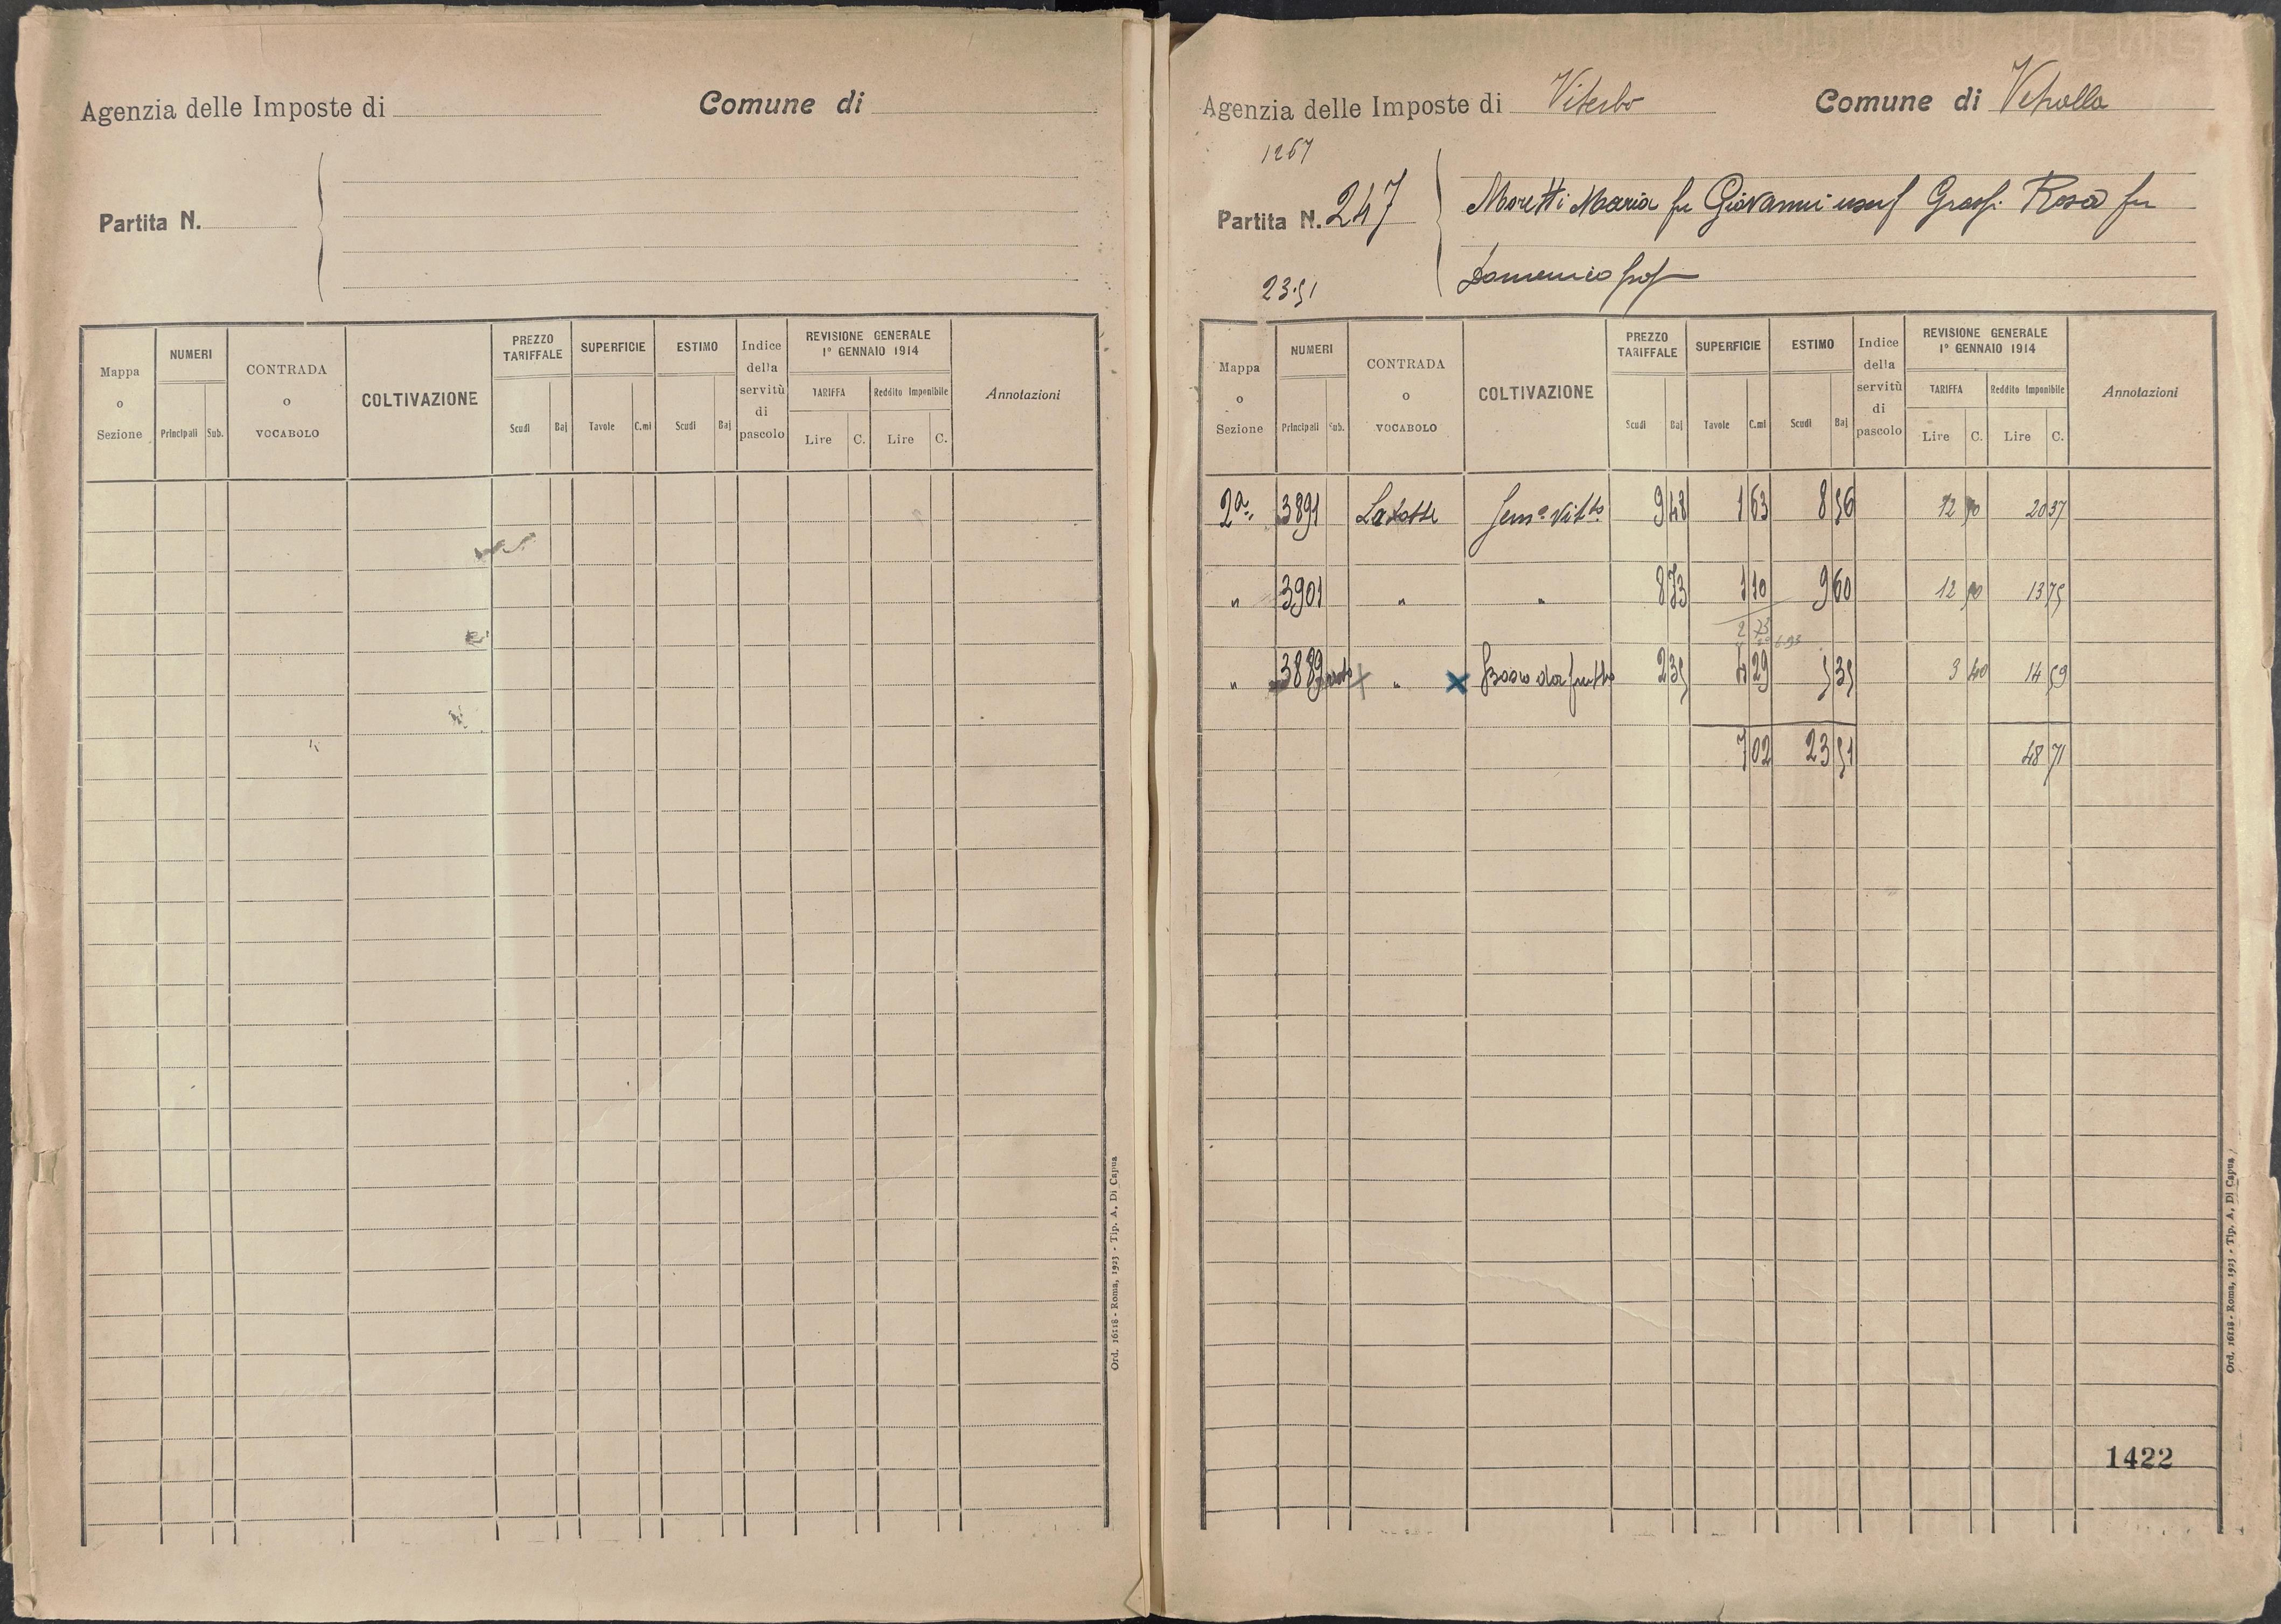 Agenzia delle Imposte di
Comune di
Partita N.
Mappa o Sezione
NUMERI
Principali Sub.
CONTRADA o VOCABOLO
COLTIVAZIONE
PREZZO TARIFFALE
Scudi Baj
SUPERFICIE
Tavole C.mi
ESTIMO
Scudi Baj
Indice della servitù di pascolo
REVISIONE GENERALE
1° GENNAIO 1914
TARIFFA
Lire C.
Reddito Imponibile
Lire C.
Annotazioni
Ord. 16118 - Roma, 1923 - Tip. A. Di Capua
Agenzia delle Imposte di Viterbo
Comune di Vetralla
1267
Partita N. 247
Moretti Maria fu Giovanni usuf Grassi Rosa fu
Domenico prop
23.51
Mappa o Sezione
NUMERI
Principali Sub.
CONTRADA o VOCABOLO
COLTIVAZIONE
PREZZO TARIFFALE
Scudi Baj
SUPERFICIE
Tavole C.mi
ESTIMO
Scudi Baj
Indice della servitù di pascolo
REVISIONE GENERALE
1° GENNAIO 1914
TARIFFA
Lire C.
Reddito Imponibile
Lire C.
Annotazioni
2a 3891 Sem° Vit.to 9 48 1 63 8 56 12 50 20 37
" 3901 " " 8 73 1 10 9 60 12 50 13 75
2 73
" 3889 " Bosco da frutto 2 35 4 29 5 35 3 40 14 59
7 02 23 51 48 71
1422
Ord. 16118 - Roma, 1923 - Tip. A. Di Capua